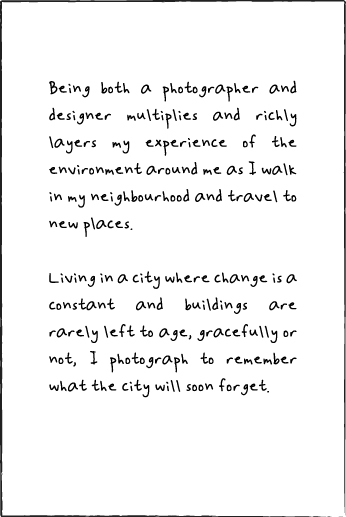 Being both a photographer and
designer multiplies and richly
layers my experience of the
environment around me as I walk
in my neighbourhood and travel to
new places.

Living in a city where change is a
constant and buildings are
rarely left to age, gracefully or
not, I photograph to remember
what the city will soon forget.